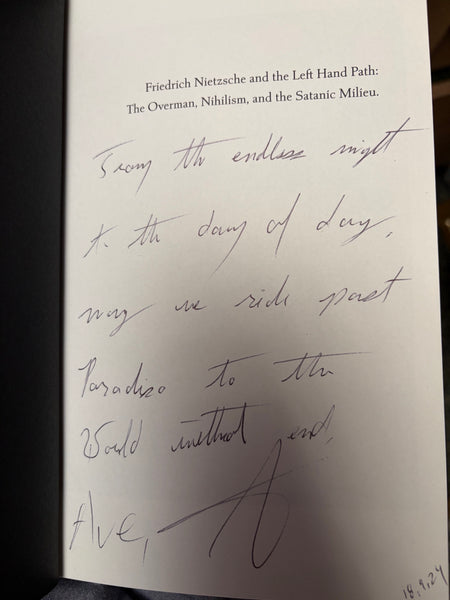 Friedrich Nietzsche and the Left Hand Path:
The Overman, Nihilism, and the Satanic Milieu.
From the endless night
to the day of day,
may we ride past
Paradiso to the
World without end,
Ave,
18.9.24